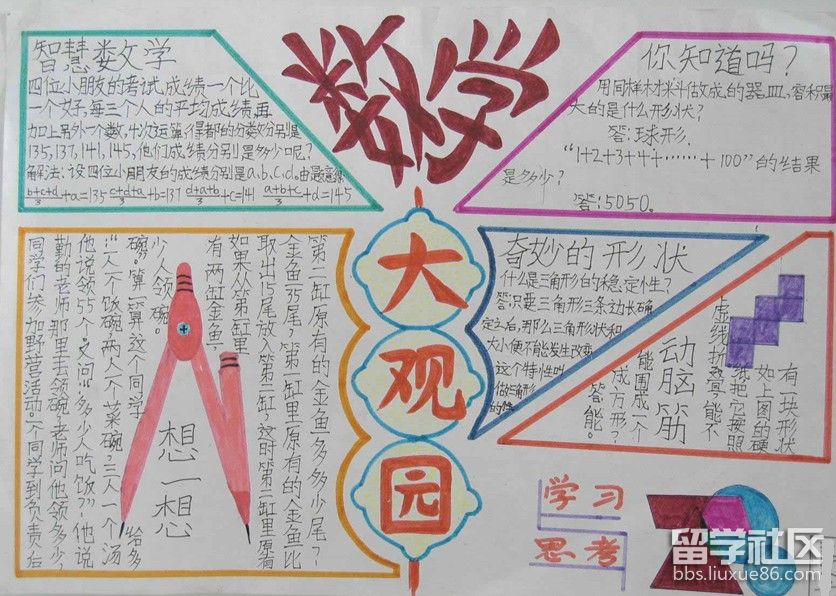 数学
大观园
智慧数学
四位小朋友的考试成绩一个比
一个好,每三个人的平均成绩再
加上另外一个数,4次运算,得都的分数分别是
135,137,141,145,他们成绩分别是多少呢?
解法:设四位小朋友的成绩分别是a.b.c.d.由题意得
b+c+d/3+a=135 c+d+a/3+b=137 d+a+b/3+c=141 a+b+c/3+d=145
你知道吗?
用同样材料做成的器皿,容积最
大的是什么形状?
答:球形.
“1+2+3+4+……+100”的结果
是多少?
答:5050。
想一想
同学们参加野营活动。一个同学到负责后
勤的老师那里去领碗,老师问他领多少,
他说领55个.又问:“多少人吃饭”他说
:“一人一个饭碗,两人一个菜碗,三人一个汤
碗。”算一算这个同学给多
少人领碗。
有两缸金鱼,
如果从第一缸里
取出15尾放入第二缸,这时第二缸里原有
金鱼35尾,第一缸里原有的金鱼比
第二缸原有的金鱼多多少尾?
奇妙的形状
什么是三角形的稳定性?
答:只要三角形三条边长确
定之后,那么三角形状和
大小便不能发生改变,
这个特性叫
做三角形
的
动脑筋
有一块形状
如上图的硬
纸把它按照
虚线折叠,能不
能围成一个
成方形?
答:能。
学习
思考
留学社区
bbs.liuxue86.com